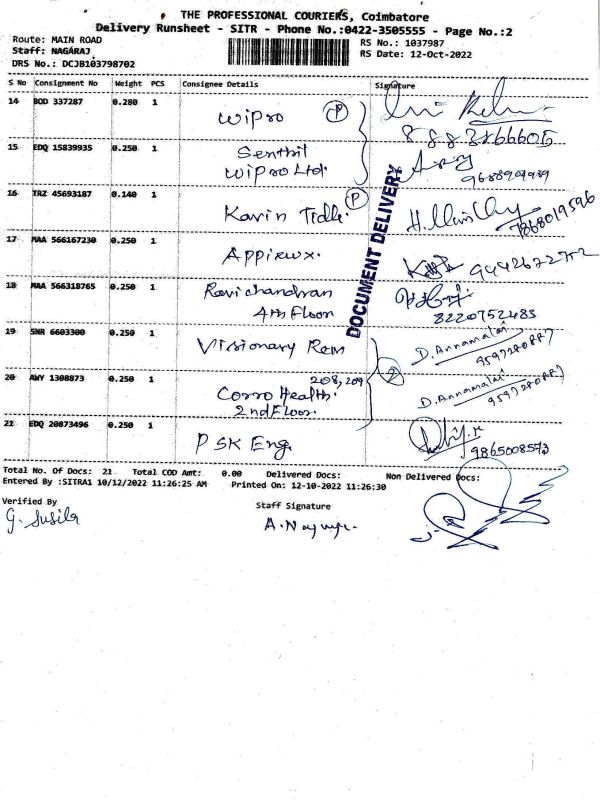 THE PROFESSIONAL COURIERS, Coimbatore
Delivery Runsheet - SITR - Phone No.:0422-3505555 - Page No.:2
Route: MAIN ROAD
Staff: NAGARAJ
DRS No.: DCJB103798702
RS No.: 1037987
RS Date: 12-Oct-2022
S No Consignment No Weight PCS Consignee Details Signature
14 BOD 337287 0.280 1 Wipro P
15 EDQ 15839935 0.250 1 Senthil
Wipro Ltd.
16 TRZ 45693187 0.140 1 Kavin Tidle. P
7868019596
17 MAA 566167230 0.250 1 Appirux.
9442672752
18 MAA 566318765 0.250 1 Ravi chandran
4th Floor
8220752485
19 SNR 6603300 0.250 1 Visionary Rcm D. Annamalai
20 AWY 1308873 0.250 1 208,209 2 D. Annamalai
Corro Health.
2nd Floor.
21 EDQ 20873496 0.250 1 PSK Eng.
9865008573
DOCUMENT DELIVERY
Total No. Of Docs: 21 Total COD Amt: 0.00 Delivered Docs: Non Delivered Docs:
Entered By :SITRA1 10/12/2022 11:26:25 AM Printed On: 12-10-2022 11:26:30
Verified By Staff Signature
G. Susila